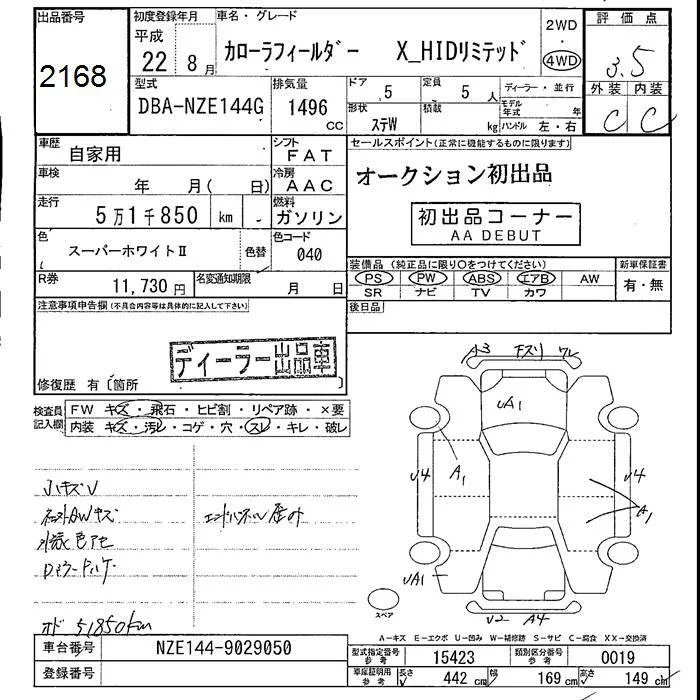 出品番号
2168
初度登録年月
平成
22年 8月
車名・グレード
カローラフィールダー X_HIDリミテッド
2WD
・
4WD
評価点
3.5
外装 内装
C C
型式
DBA-NZE144G
排気量
1496
CC
ドア
5
定員
5 人
形状
ステW
積載
kg
ディーラー・並行
モデル年式 年
ハンドル 左・右
車歴
自家用
シフト
FAT
車検
年 月( 日)
冷房
AAC
走行
5万1千850 km
燃料
ガソリン
色
スーパーホワイトⅡ
色替
色コード
040
R券
11,730 円
名変通知期限
月 日
セールスポイント(正常に機能するものに限ります)
オークション初出品
初出品コーナー
AA DEBUT
装備品(純正品に限り○をつけてください)
PS PW ABS エアB AW
SR ナビ TV カワ
新車保証書
有・無
後日品
注意事項申告欄(不具合内容等は具体的に記入して下さい)
ディーラー出品車
修復歴 有〔箇所
検査員記入欄
FW キズ・飛石・ヒビ割・リペア跡・×要
内装 キズ・汚レ・コゲ・穴・スレ・キレ・破レ
オド 51,850km
A3
ワレ
UA1
U4
A1
U4
A1
UA1
U2 A4
スペア
A-キズ E-エクボ U-凹み W-補修跡 S-サビ C-腐食 XX-交換済
車台番号
NZE144-9029050
登録番号
型式指定番号
参考
15423
類別区分番号
参考
0019
車庫証明用
参考
長さ
442 cm
幅
169 cm
高さ
149 cm